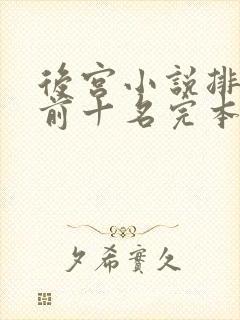 後宮小說排
前十名完本
夕希實久